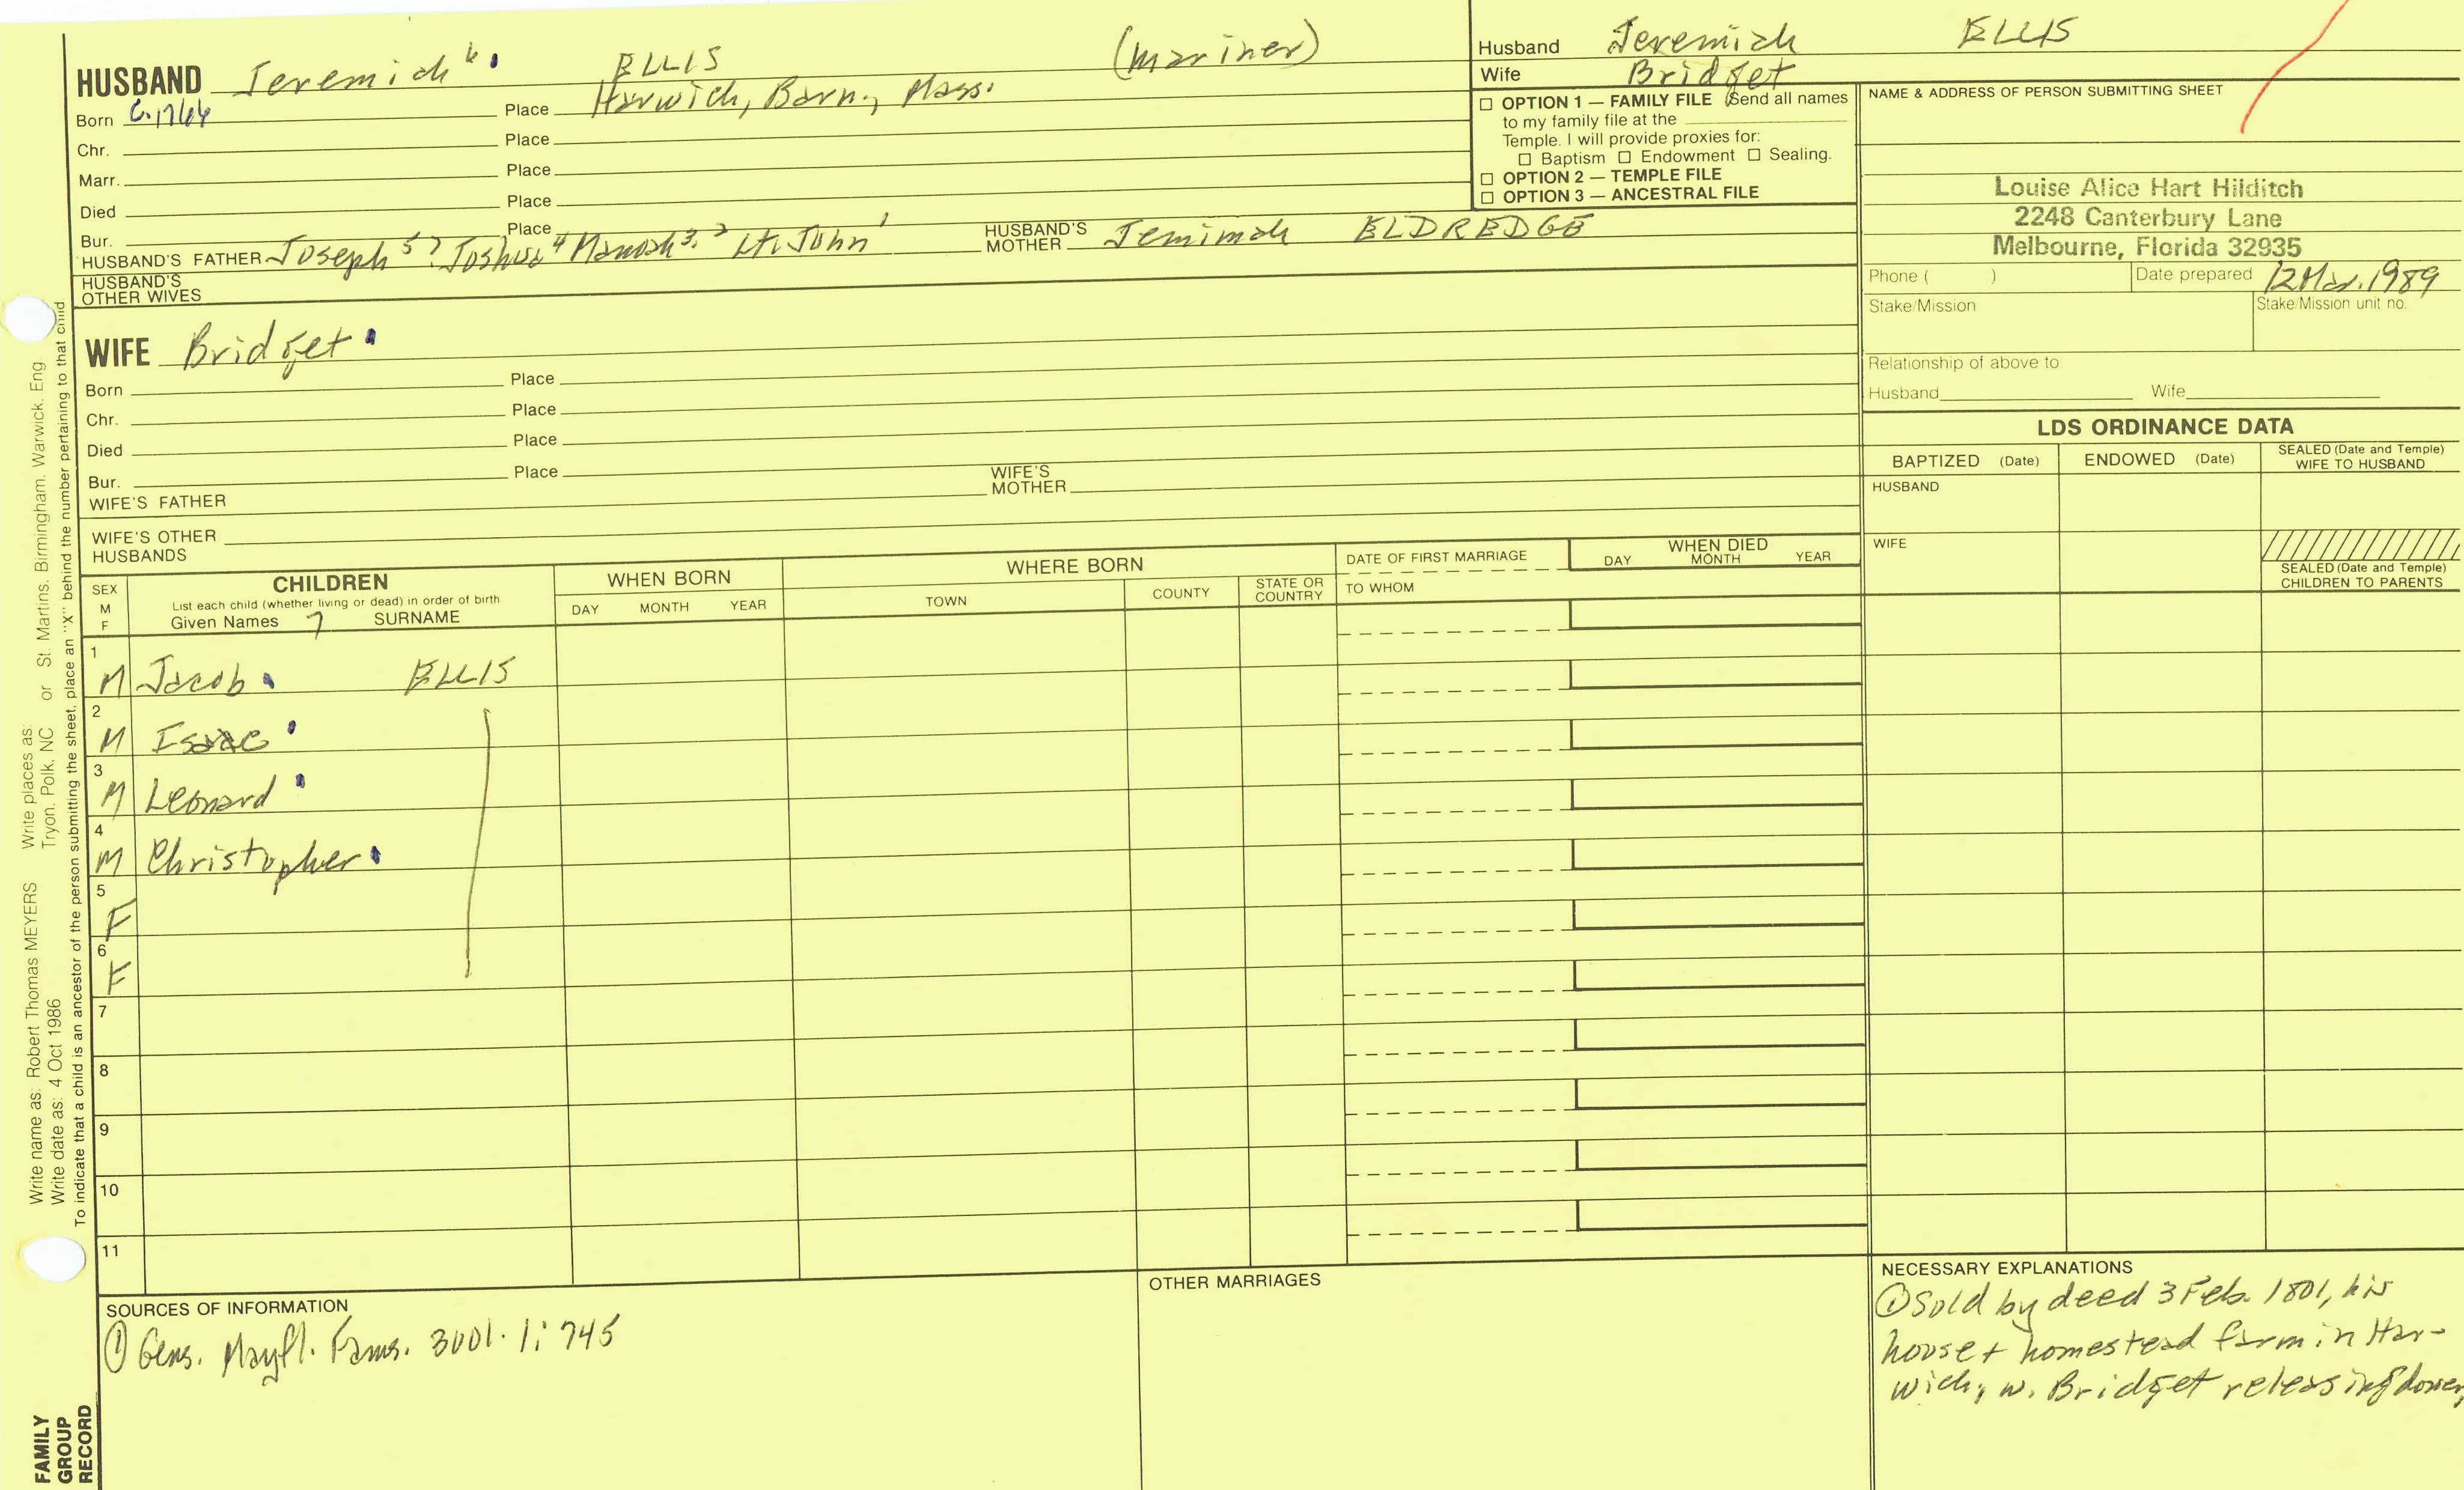 HUSBAND Jeremiah 6. ELLIS (mariner)
Born C.1764 Place Harwich, Barn., Mass.
Chr. Place
Marr. Place
Died Place
Bur. Place
HUSBAND'S FATHER Joseph 5? Joshua 4 Manoah 3, 2 Lt. John 1 HUSBAND'S MOTHER Jemimah ELDREDGE
HUSBAND'S
OTHER WIVES
WIFE Bridget
Born Place
Chr. Place
Died Place
Bur. Place
WIFE'S FATHER WIFE'S MOTHER
WIFE'S OTHER
HUSBANDS
Husband Jeremiah ELLIS
Wife Bridget
OPTION 1 — FAMILY FILE (Send all names
to my family file at the
Temple. I will provide proxies for:
Baptism Endowment Sealing.
OPTION 2 — TEMPLE FILE
OPTION 3 — ANCESTRAL FILE
NAME & ADDRESS OF PERSON SUBMITTING SHEET
Louise Alice Hart Hilditch
2248 Canterbury Lane
Melbourne, Florida 32935
Phone ( ) Date prepared 12 Mar. 1989
Stake/Mission Stake/Mission unit no.
Relationship of above to
Husband Wife
LDS ORDINANCE DATA
BAPTIZED (Date) ENDOWED (Date) SEALED (Date and Temple)
WIFE TO HUSBAND
HUSBAND
WIFE
SEALED (Date and Temple)
CHILDREN TO PARENTS
SEX
M
F
CHILDREN
List each child (whether living or dead) in order of birth
Given Names 7 SURNAME
WHEN BORN
DAY MONTH YEAR
WHERE BORN
TOWN COUNTY STATE OR
COUNTRY
DATE OF FIRST MARRIAGE
TO WHOM
WHEN DIED
DAY MONTH YEAR
1
M Jacob ELLIS
2
M Isaac
3
M Leonard
4
M Christopher
5
F
6
F
7
8
9
10
11
SOURCES OF INFORMATION
① Gens. Mayfl. Fams. 3001. 1: 745
OTHER MARRIAGES
NECESSARY EXPLANATIONS
① Sold by deed 3 Feb. 1801, his
house + homestead farm in Har-
wich, w. Bridget releasing dower,
Write name as: Robert Thomas MEYERS Write places as:
Write date as: 4 Oct 1986 Tryon. Polk. NC or St. Martins. Birmingham. Warwick. Eng
To indicate that a child is an ancestor of the person submitting the sheet, place an "X" behind the number pertaining to that child
FAMILY
GROUP
RECORD